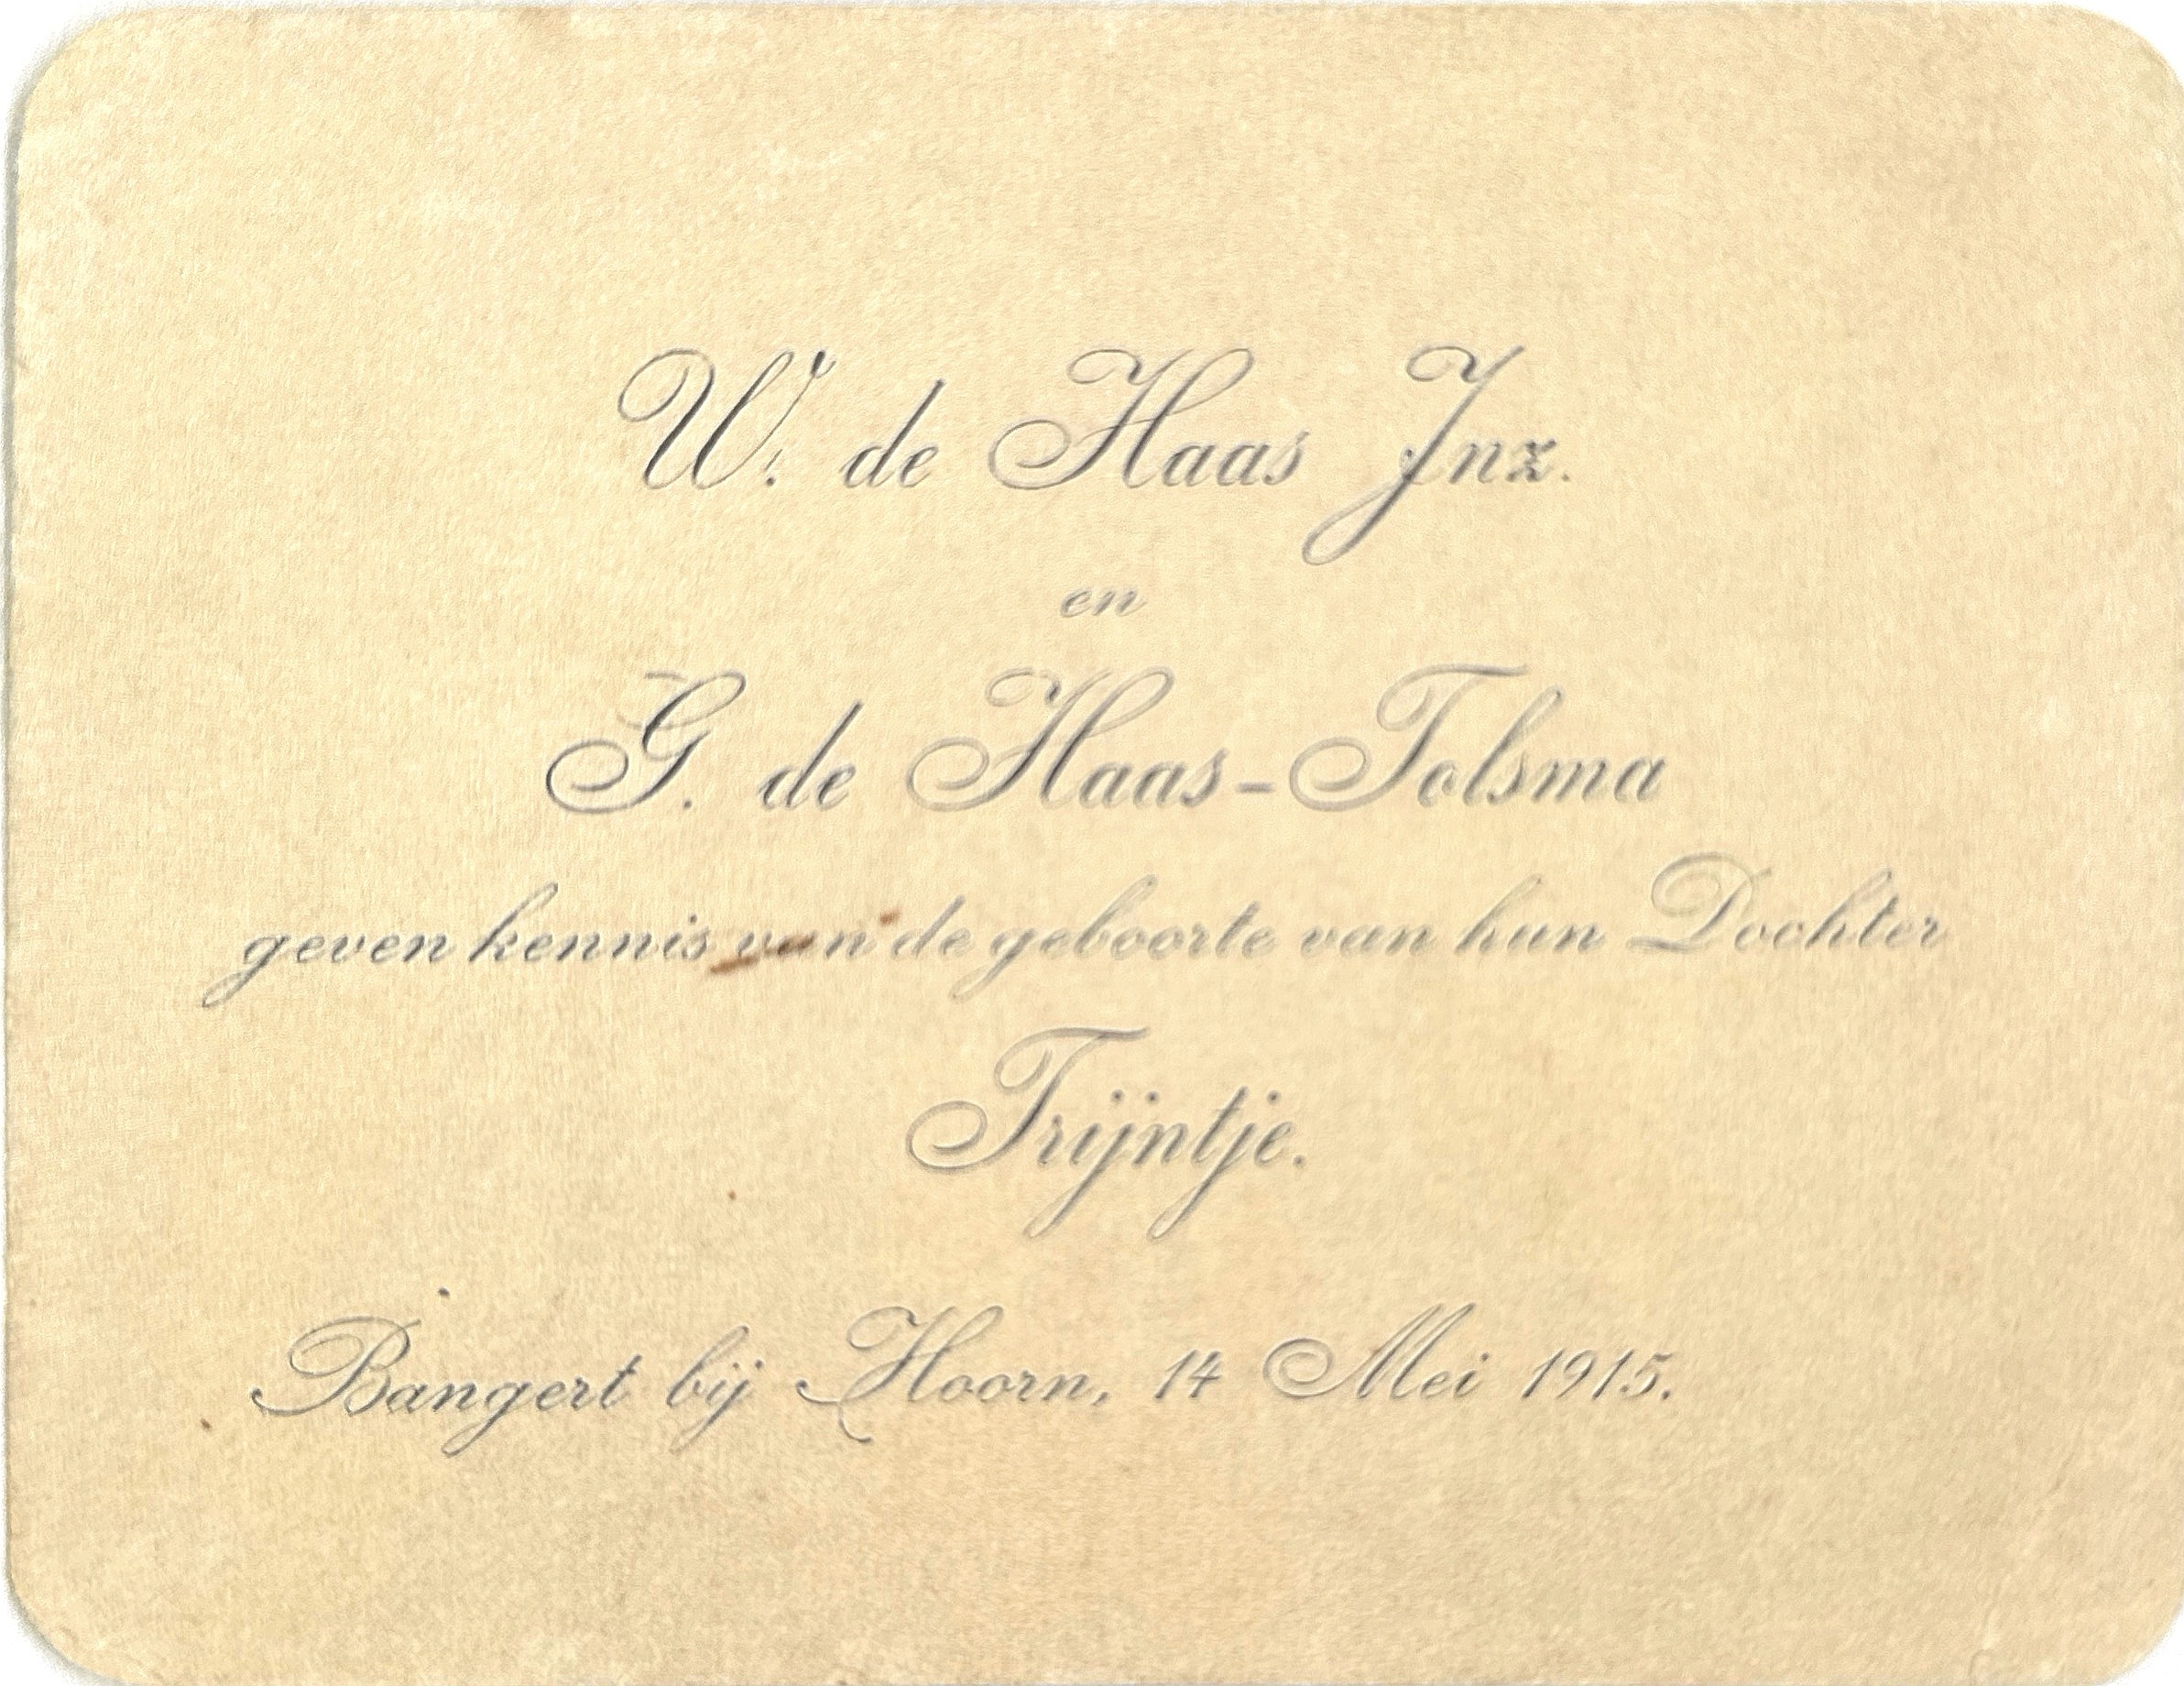 W. de Haas Jnz.
en
G. de Haas-Tolsma
geven kennis van de geboorte van hun Dochter
Trijntje.
Bangert bij Hoorn, 14 Mei 1915.